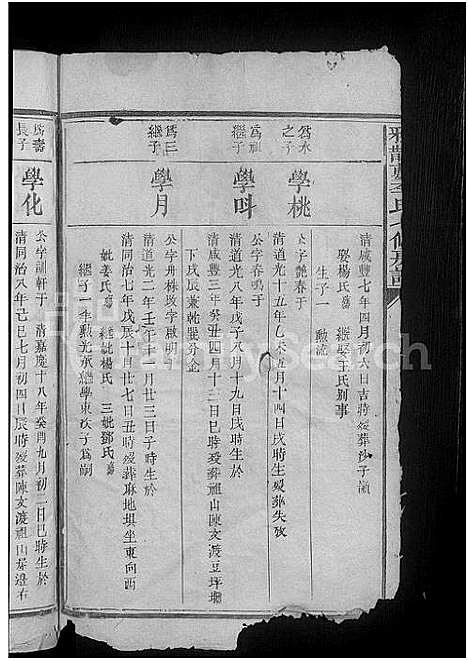 爲永
之子
學桃
公字艷春于
清道光十五年乙未五月十四日戌時生歿葬失攷
清咸豐七年四月初六日吉時歿葬沙子嶺
娶楊氏 繼娶王氏別事
生子一 勳流
爲祖
繼子
學呌
公字春鳴于
清道光八年戊子八月十九日戌時生於
清咸豐三年癸丑四月十三日巳時歿葬祖山陳文渡豆坪壩
下戌辰兼乾巽分金
爲三
繼子
學月
公字舟株改字啟明
清道光二年壬午十一月廿三日子時生於
清同治七年戊辰十月廿七日丑時歿葬麻地垻坐東向西
妣姜氏 繼妣楊氏 三妣鄧氏
繼子一李勳光承繼學東次子爲嗣
爲壽
長子
學化
公字訓軒于 清嘉慶十八年癸酉九月初二日巳時生於
清同治八年己巳七月初四日辰時歿葬陳文渡祖山墓邊右